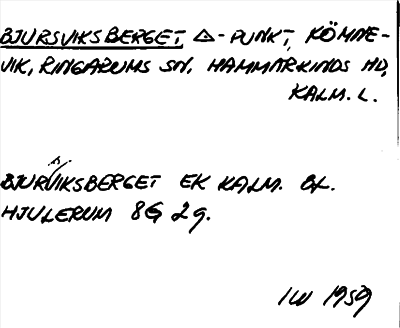 BJURSVIKSBERGET, △-PUNKT, KÖMNE-
VIK, RINGARUMS SN, HAMMARKINDS HD,
KALM. L.
BJURVIKSBERGET EK KALM. BL.
HJULERUM 8G 2g.
IW 1959